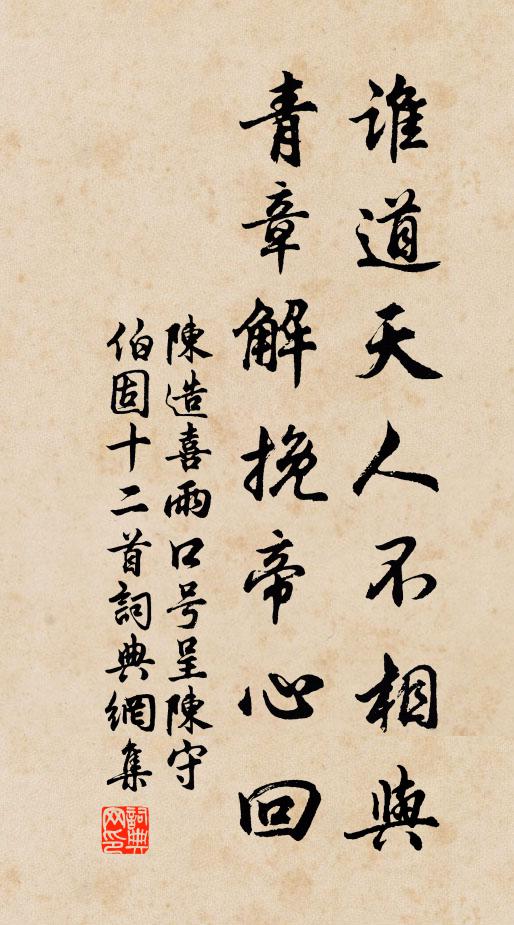 誰道天人不相與
青章解挽帝心回
陳造喜雨口号呈陳守
伯固十二首詞典網集
詞典网印